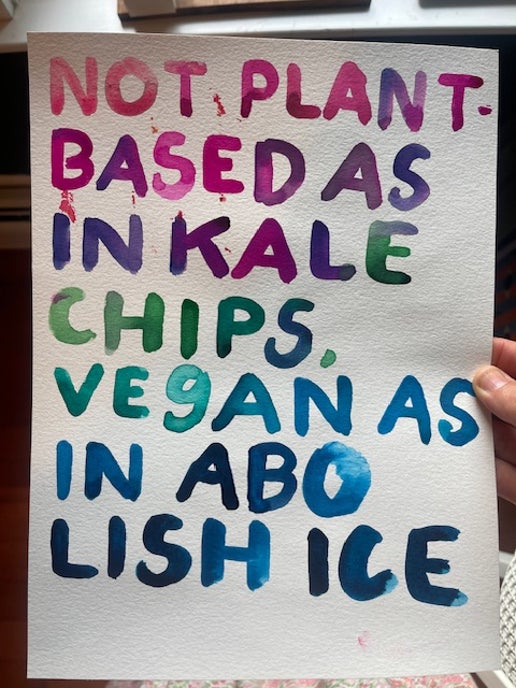 NOT PLANT-
BASED AS
IN KALE
CHIPS,
VEGAN AS
IN ABO
LISH ICE